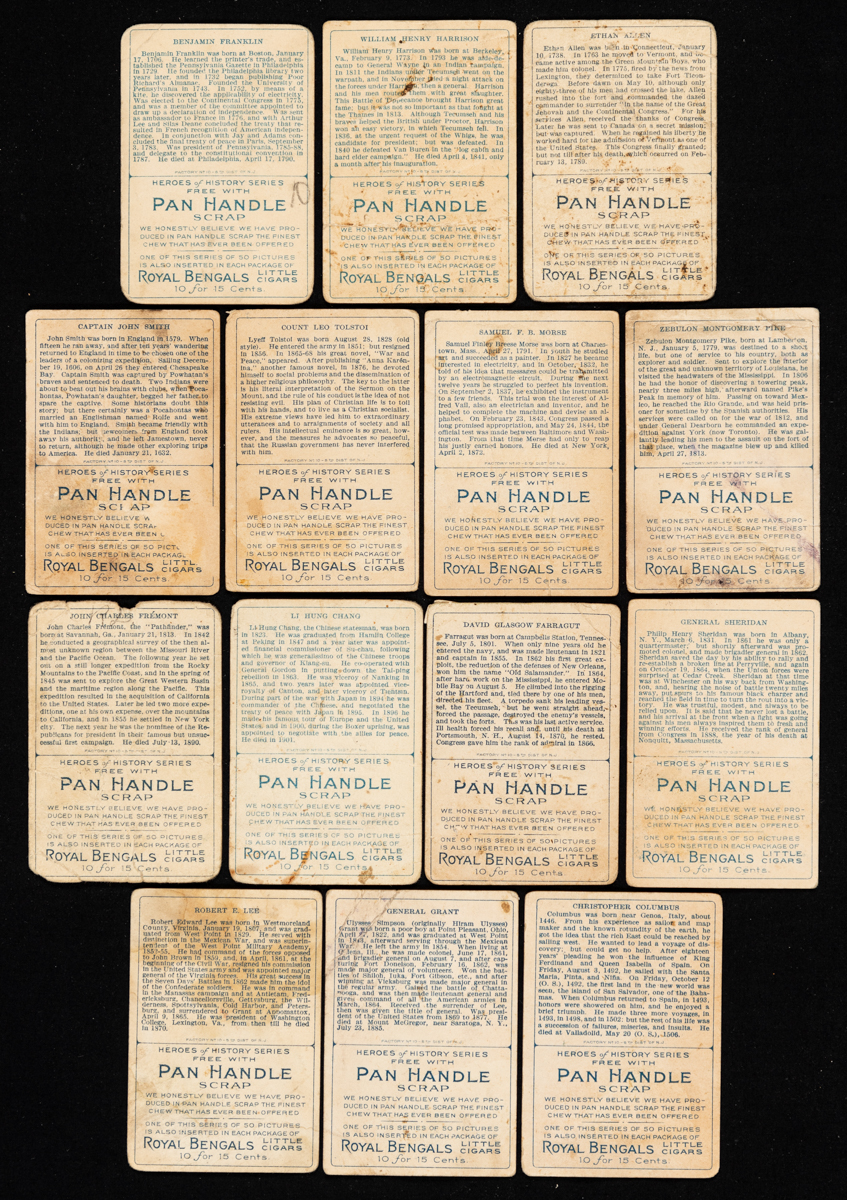 BENJAMIN FRANKLIN
Benjamin Franklin was born at Boston, January
17, 1706. He learned the printer's trade, and es-
tablished the Pennsylvania Gazette in Philadelphia
in 1729. He founded the Philadelphia library two
years later, and in 1732 began publishing Poor
Richard's Almanac. Founded the University of
Pennsylvania in 1743. In 1752, by means of a
kite, he discovered the applicability of electricity.
Was elected to the Continental Congress in 1775,
and was a member of the committee appointed to
draw up a declaration of independence. Was sent
as ambassador to France in 1776, and with Arthur
Lee and Silas Deane concluded the treaty that re-
sulted in French recognition of American indepen-
dence. In conjunction with Jay and Adams con-
cluded the final treaty of peace in Paris, September
3, 1783. Was president of Pennsylvania, 1785-88,
and delegate to the constitutional convention in
1787. He died at Philadelphia, April 17, 1790.
HEROES of HISTORY SERIES
FREE WITH
PAN HANDLE
SCRAP
WE HONESTLY BELIEVE WE HAVE PRO-
DUCED IN PAN HANDLE SCRAP THE FINEST
CHEW THAT HAS EVER BEEN OFFERED
ONE OF THIS SERIES OF 50 PICTURES
IS ALSO INSERTED IN EACH PACKAGE OF
ROYAL BENGALS LITTLE CIGARS
10 for 15 Cents
WILLIAM HENRY HARRISON
William Henry Harrison was born at Berkeley,
Va., February 9, 1773. In 1793 he was aide-de-
camp to General Wayne in an Indian campaign.
In 1811 the Indians under Tecumseh went on the
warpath, and in November tried a night attack on
the forces under Harrison, then a general. Harrison
and his men routed them with great slaughter.
This Battle of Tippecanoe brought Harrison great
fame; but it was not so important as that fought at
the Thames in 1813. Although Tecumseh and his
braves helped the British under Proctor, Harrison
won an easy victory, in which Tecumseh fell. In
1836, at the urgent request of the Whigs, he was
candidate for president; but was defeated. In
1840 he defeated Van Buren in the "log cabin and
hard cider campaign." He died April 4, 1841, only
a month after his inauguration.
HEROES of HISTORY SERIES
FREE WITH
PAN HANDLE
SCRAP
WE HONESTLY BELIEVE WE HAVE PRO-
DUCED IN PAN HANDLE SCRAP THE FINEST
CHEW THAT HAS EVER BEEN OFFERED
ONE OF THIS SERIES OF 50 PICTURES
IS ALSO INSERTED IN EACH PACKAGE OF
ROYAL BENGALS LITTLE CIGARS
10 for 15 Cents
ETHAN ALLEN
Ethan Allen was born in Connecticut, January
10, 1738. In 1763 he moved to Vermont, and be-
came active among the Green Mountain Boys, who
made him colonel. In 1775, fired by the news from
Lexington, they determined to take Fort Ticon-
deroga. Before dawn on May 10, although only
eighty-three of his men had crossed the lake, Allen
rushed into the fort and commanded the dazed
commander to surrender "in the name of the Great
Jehovah and the Continental Congress." For his
services Allen, received the thanks of Congress.
Later he was sent to Canada on a secret mission,
but was captured. When he regained his liberty he
worked hard for the admission of Vermont as one of
the United States. This Congress finally granted;
but not till after his death, which occurred on Feb-
ruary 13, 1789.
HEROES of HISTORY SERIES
FREE WITH
PAN HANDLE
SCRAP
WE HONESTLY BELIEVE WE HAVE PRO-
DUCED IN PAN HANDLE SCRAP THE FINEST
CHEW THAT HAS EVER BEEN OFFERED
ONE OF THIS SERIES OF 50 PICTURES
IS ALSO INSERTED IN EACH PACKAGE OF
ROYAL BENGALS LITTLE CIGARS
10 for 15 Cents
CAPTAIN JOHN SMITH
John Smith was born in England in 1579. When
fifteen he ran away, and after ten years' wandering
returned to England in time to be chosen one of the
leaders of a colonizing expedition. Sailing Decem-
ber 19, 1606, on April 26 they entered Chesapeake
Bay. Captain Smith was captured by Powhatan's
braves and sentenced to death. Two Indians were
about to beat out his brains with clubs, when Poca-
hontas, Powhatan's daughter, begged her father to
spare the captive. Some historians doubt this
story; but there certainly was a Pocahontas who
married an Englishman named Rolfe and went
with him to England. Smith became friendly with
the Indians; but newcomers from England took
away his authority, and he left Jamestown, never
to return, although he made other exploring trips
to America. He died January 21, 1632.
HEROES of HISTORY SERIES
FREE WITH
PAN HANDLE
SCRAP
WE HONESTLY BELIEVE W
DUCED IN PAN HANDLE SCRAP
CHEW THAT HAS EVER BEEN
ONE OF THIS SERIES OF 50 PICT
IS ALSO INSERTED IN EACH PACKAG
ROYAL BENGALS LITTL CIGARS
10 for 15 Cents
COUNT LEO TOLSTOI
Lyeff Tolstoi was born August 28, 1828 (old
style). He entered the army in 1851; but resigned
in 1856. In 1865-68 his great novel, "War and
Peace," appeared. After publishing "Anna Karén-
ina," another famous novel, in 1876, he devoted
himself to social problems and the dissemination of
a higher religious philosophy. The key to the latter
is his literal interpretation of the Sermon on the
Mount, and the rule of his conduct is the idea of not
resisting evil. His plan of Christian life is to toil
with his hands, and to live as a Christian socialist.
His extreme views have led him to extraordinary
utterances and to arraignments of society and all
rulers. His intellectual eminence is so great, how-
ever, and the measures he advocates so peaceful,
that the Russian government has never interfered
with him.
HEROES of HISTORY SERIES
FREE WITH
PAN HANDLE
SCRAP
WE HONESTLY BELIEVE WE HAVE PRO-
DUCED IN PAN HANDLE SCRAP THE FINEST
CHEW THAT HAS EVER BEEN OFFERED
ONE OF THIS SERIES OF 50 PICTURES
IS ALSO INSERTED IN EACH PACKAGE OF
ROYAL BENGALS LITTLE CIGARS
10 for 15 Cents
SAMUEL F. B. MORSE
Samuel Finley Breese Morse was born at Charles-
town, Mass., April 27, 1791. In youth he studied
art and succeeded as a painter. In 1827 he became
interested in electricity, and in October, 1832, he
told of his idea that messages could be transmitted
by an electromagnetic circuit. During the next
twelve years he struggled to perfect his invention.
On September 2, 1837, he exhibited the instrument
to a few friends. This trial won the interest of Al-
fred Vail, also an electrician and inventor, and he
helped to complete the machine and devise an al-
phabet. On February 23, 1843, Congress passed a
long promised appropriation, and May 24, 1844, the
official test was made between Baltimore and Wash-
ington. From that time Morse had only to reap
his justly earned honors. He died at New York,
April 2, 1872.
HEROES of HISTORY SERIES
FREE WITH
PAN HANDLE
SCRAP
WE HONESTLY BELIEVE WE HAVE PRO-
DUCED IN PAN HANDLE SCRAP THE FINEST
CHEW THAT HAS EVER BEEN OFFERED
ONE OF THIS SERIES OF 50 PICTURES
IS ALSO INSERTED IN EACH PACKAGE OF
ROYAL BENGALS LITTLE CIGARS
10 for 15 Cents
ZEBULON MONTGOMERY PIKE
Zebulon Montgomery Pike, born at Lamberton,
N. J., January 5, 1779, was destined to a short
life, but one of service to his country, both as
explorer and soldier. Sent to explore the interior
of the great and unknown territory of Louisiana, he
visited the headwaters of the Mississippi. In 1806
he had the honor of discovering a towering peak,
nearly three miles high, afterward named Pike's
Peak in memory of him. Passing on toward Mex-
ico, he reached the Rio Grande, and was held pris-
oner for sometime by the Spanish authorities. His
services were called on for the war of 1812, and
under General Dearborn he commanded an expe-
dition against York (now Toronto). He was gal-
lantly leading his men to the assault on the fort of
that place, when the magazine blew up and killed
him, April 27, 1813.
HEROES of HISTORY SERIES
FREE WITH
PAN HANDLE
SCRAP
WE HONESTLY BELIEVE WE HAVE PRO-
DUCED IN PAN HANDLE SCRAP THE FINEST
CHEW THAT HAS EVER BEEN OFFERED
ONE OF THIS SERIES OF 50 PICTURES
IS ALSO INSERTED IN EACH PACKAGE OF
ROYAL BENGALS LITTLE CIGARS
10 for 15 Cents
JOHN CHARLES FRÉMONT
John Charles Frémont, the "Pathfinder," was
born at Savannah, Ga., January 21, 1813. In 1842
he conducted a geographical survey of the then al-
most unknown region between the Missouri River
and the Pacific Ocean. The following year he set
out on a still longer expedition from the Rocky
Mountains to the Pacific Coast, and in the spring of
1845 was sent to explore the Great Western Basin
and the maritime region along the Pacific. This
expedition resulted in the acquisition of California
to the United States. Later he led two more expe-
ditions, one at his own expense, over the mountains
to California, and in 1855 he settled in New York
city. The next year he was the nominee of the Re-
publicans for president in their famous but unsuc-
cessful first campaign. He died July 13, 1890.
HEROES of HISTORY SERIES
FREE WITH
PAN HANDLE
SCRAP
WE HONESTLY BELIEVE WE HAVE PRO-
DUCED IN PAN HANDLE SCRAP THE FINEST
CHEW THAT HAS EVER BEEN OFFERED
ONE OF THIS SERIES OF 50 PICTURES
IS ALSO INSERTED IN EACH PACKAGE OF
ROYAL BENGALS LITTLE CIGARS
10 for 15 Cents
LI HUNG CHANG
Li Hung Chang, the Chinese statesman, was born
in 1823. He was graduated from Hanlin College
at Peking in 1847 and a year later was appoint-
ed financial commissioner of Su-chau, following
which he was generalissimo of the Chinese troops
and governor of Kiang-su. He co-operated with
General Gordon in putting down the Tai-ping
rebellion in 1863. He was viceroy of Nanking in
1865, and two years later was appointed vice-
royalty of Canton, and later viceroy of Tientsin.
During part of the war with Japan in 1894 he was
commander of the Chinese, and negotiated the
treaty of peace with Japan in 1895. In 1896 he
made his famous tour of Europe and the United
States, and in 1900, during the Boxer uprising, was
appointed to negotiate with the allies for peace.
He died in 1901.
HEROES of HISTORY SERIES
FREE WITH
PAN HANDLE
SCRAP
WE HONESTLY BELIEVE WE HAVE PRO-
DUCED IN PAN HANDLE SCRAP THE FINEST
CHEW THAT HAS EVER BEEN OFFERED
ONE OF THIS SERIES OF 50 PICTURES
IS ALSO INSERTED IN EACH PACKAGE OF
ROYAL BENGALS LITTLE CIGARS
10 for 15 Cents
DAVID GLASGOW FARRAGUT
Farragut was born at Campbells Station, Tennes-
see, July 5, 1801. When only nine years old he
entered the navy, and was made lieutenant in 1821
and captain in 1855. In 1862 his first great ex-
ploit, the reduction of the defenses of New Orleans,
won him the name "Old Salamander." In 1864,
after hard work on the Mississippi, he entered Mo-
bile Bay on August 5. He climbed into the rigging
of the Hartford and, tied there by one of his men,
directed his fleet. A torpedo sank his leading ves-
sel, the Tecumseh, but he went straight ahead,
forced the passage, destroyed the enemy's vessels,
and took the forts. This was his last active service.
Ill health forced his recall and, until his death at
Portsmouth, N. H., August 14, 1870, he rested.
Congress gave him the rank of admiral in 1866.
HEROES of HISTORY SERIES
FREE WITH
PAN HANDLE
SCRAP
WE HONESTLY BELIEVE WE HAVE PRO-
DUCED IN PAN HANDLE SCRAP THE FINEST
CHEW THAT HAS EVER BEEN OFFERED
ONE OF THIS SERIES OF 50 PICTURES
IS ALSO INSERTED IN EACH PACKAGE OF
ROYAL BENGALS LITTLE CIGARS
10 for 15 Cents
GENERAL SHERIDAN
Philip Henry Sheridan was born in Albany,
N. Y., March 6, 1831. In 1861 he was only a
quartermaster; but shortly afterward was pro-
moted colonel, and made brigadier general in 1862.
Sheridan saved the day by his ability to rally and
re-establish a broken line at Perryville, and again
on October 19, 1864, when the Union forces were
surprised at Cedar Creek. Sheridan at that time
was at Winchester on his way back from Washing-
ton, and, hearing the noise of battle twenty miles
away, put spurs to his famous black charger and
reached the field in time to turn the rout into a vic-
tory. He was trustful, modest, and always to be
relied upon. It is said that he never lost a battle,
and his arrival at the front when a fight was going
against his men always inspired them to fresh and
winning efforts. He received the rank of general
from Congress in 1888, the year of his death at
Nonquitt, Massachusetts.
HEROES of HISTORY SERIES
FREE WITH
PAN HANDLE
SCRAP
WE HONESTLY BELIEVE WE HAVE PRO-
DUCED IN PAN HANDLE SCRAP THE FINEST
CHEW THAT HAS EVER BEEN OFFERED
ONE OF THIS SERIES OF 50 PICTURES
IS ALSO INSERTED IN EACH PACKAGE OF
ROYAL BENGALS LITTLE CIGARS
10 for 15 Cents
ROBERT E. LEE
Robert Edward Lee was born in Westmoreland
County, Virginia, January 19, 1807, and was grad-
uated from West Point in 1829. He served with
distinction in the Mexican War, and was superin-
tendent of the West Point Military Academy,
1852-55. He had command of the force opposed
to John Brown in 1859, and in April, 1861, at the
beginning of the Civil War, resigned his commission
in the United States army and was appointed major
general of the Virginia forces. His great success in
the Seven Days' Battles in 1862 made him the idol
of the Confederate soldiers. He was in command
in the Manassas campaign; at Antietam, Fred-
ericksburg, Chancellorsville, Gettysburg, the Wil-
derness, Spotsylvania, Cold Harbor, and Peters-
burg, and surrendered to Grant at Appomattox,
April 9, 1865. He was president of Washington
College, Lexington, Va., from then till he died
in 1870.
HEROES of HISTORY SERIES
FREE WITH
PAN HANDLE
SCRAP
WE HONESTLY BELIEVE WE HAVE PRO-
DUCED IN PAN HANDLE SCRAP THE FINEST
CHEW THAT HAS EVER BEEN OFFERED
ONE OF THIS SERIES OF 50 PICTURES
IS ALSO INSERTED IN EACH PACKAGE OF
ROYAL BENGALS LITTLE CIGARS
10 for 15 Cents
GENERAL GRANT
Ulysses Simpson (originally Hiram Ulysses)
Grant was born a poor boy at Point Pleasant, Ohio,
April 27, 1822, and was graduated at West Point
in 1843, afterward serving through the Mexican
War. He left the army in 1854. When living at
Galena, Ill., he was made colonel, June 17, 1861,
and brigadier general on August 7, and after cap-
turing Fort Donelson, February 16, 1862, was
made major general of volunteers. Won the bat-
tles of Shiloh, Iuka, Fort Gibson, etc., and after
winning at Vicksburg was made major general in
the regular army. Gained the battle of Chatta-
nooga, and was then made lieutenant general and
given command of all the American armies in
March, 1864. Received the surrender of Lee,
then was given the title of general. Was presi-
dent of the United States from 1869 to 1877. He
died at Mount McGregor, near Saratoga, N. Y.,
July 23, 1885.
HEROES of HISTORY SERIES
FREE WITH
PAN HANDLE
SCRAP
WE HONESTLY BELIEVE WE HAVE PRO-
DUCED IN PAN HANDLE SCRAP THE FINEST
CHEW THAT HAS EVER BEEN OFFERED
ONE OF THIS SERIES OF 50 PICTURES
IS ALSO INSERTED IN EACH PACKAGE OF
ROYAL BENGALS LITTLE CIGARS
10 for 15 Cents
CHRISTOPHER COLUMBUS
Columbus was born near Genoa, Italy, about
1446. From his experience as sailor and map
maker and the known rotundity of the earth, he
got the idea that the rich East could be reached by
sailing west. He wanted to lead a voyage of dis-
covery; but could get no help. After eighteen
years' pleading he won the influence of King
Ferdinand and Queen Isabella of Spain. On
Friday, August 3, 1492, he sailed with the Santa
Maria, Pinta, and Niña. On Friday, October 12
(O. S.), 1492, the first land in the new world was
seen, the island of San Salvador, one of the Baha-
mas. When Columbus returned to Spain, in 1493,
honors were showered on him, and he enjoyed a
brief triumph. He made three more voyages, in
1493, in 1498, and in 1502; but the rest of his life was
a succession of failures, miseries, and insults. He
died at Valladolid, May 20 (O. S.), 1506.
HEROES of HISTORY SERIES
FREE WITH
PAN HANDLE
SCRAP
WE HONESTLY BELIEVE WE HAVE PRO-
DUCED IN PAN HANDLE SCRAP THE FINEST
CHEW THAT HAS EVER BEEN OFFERED
ONE OF THIS SERIES OF 50 PICTURES
IS ALSO INSERTED IN EACH PACKAGE OF
ROYAL BENGALS LITTLE CIGARS
10 for 15 Cents